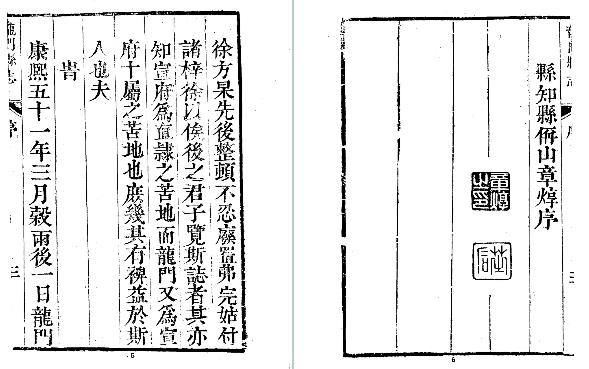 徐方杲先後整頓不忍廢置弗完姑付
諸梓徐以俟後之君子覽斯誌者其亦
知宣府為直隸之苦地而龍門又為宣
府十屬之苦地也庶幾其有裨益於斯
人也夫
旹
康熙五十一年三月穀雨後一日龍門
龍門縣志 序 三
縣知縣偁山章焞序
章焞之印